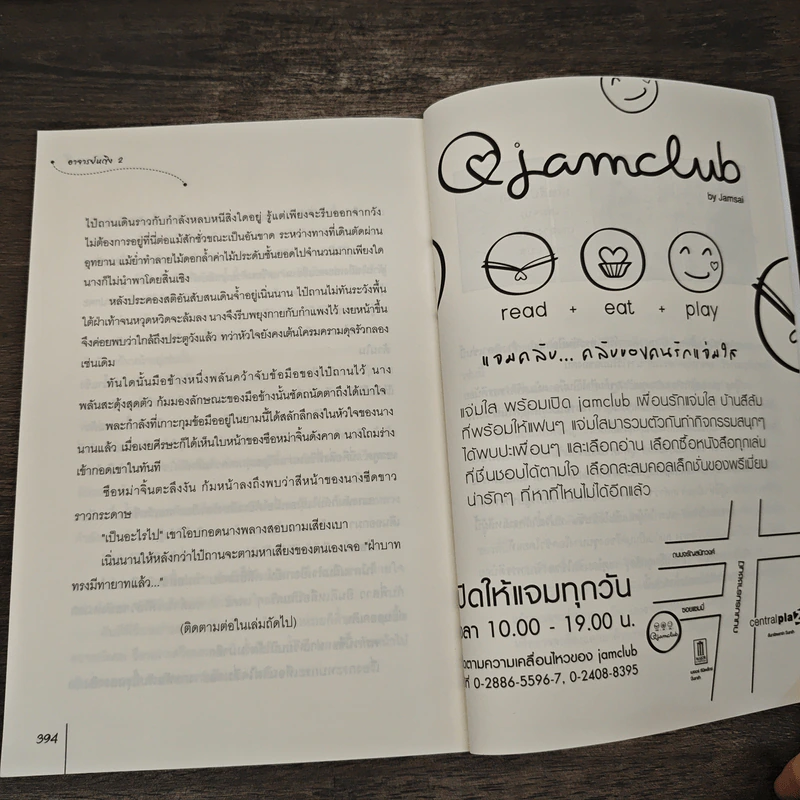 อาจารย์หญิง 2
ไป๋ถานเดินราวกับกำลังหลบหนีสิ่งใดอยู่ รู้แต่เพียงจะรีบออกจากวัง
ไม่ต้องการอยู่ที่นี่ต่อแม้สักชั่วขณะเป็นอันขาด ระหว่างทางที่เดินตัดผ่าน
อุทยาน แม้ย่ำทำลายไม้ดอกล้ำค่าไม้ประดับชั้นยอดไปจำนวนมากเพียงใด
นางก็ไม่นำพาโดยสิ้นเชิง
หลังประคองสติอันสับสนเดินจ้ำอยู่เนิ่นนาน ไป๋ถานไม่ทันระวังพื้น
ใต้ฝ่าเท้าจนหวุดหวิดจะล้มลง นางจึงรีบพยุงกายกับกำแพงไว้ เงยหน้าขึ้น
จึงค่อยพบว่าใกล้ถึงประตูวังแล้ว ทว่าหัวใจยังคงเต้นโครมครามดุจรัวกลอง
เช่นเดิม
ทันใดนั้นมือข้างหนึ่งพลันคว้าจับข้อมือของไป๋ถานไว้ นาง
พลันสะดุ้งสุดตัว ก้มมองลักษณะของมือข้างนั้นชัดถนัดตาถึงได้เบาใจ
พละกำลังที่เกาะกุมข้อมืออยู่ในยามนี้ได้สลักลึกลงในหัวใจของนาง
นานแล้ว เมื่อเงยศีรษะก็ได้เห็นใบหน้าของซือหม่าจิ้นดังคาด นางโถมร่าง
เข้ากอดเขาในทันที
ซือหม่าจิ้นตะลึงงัน ก้มหน้าลงถึงพบว่าสีหน้าของนางซีดขาว
ราวกระดาษ
"เป็นอะไรไป" เขาโอบกอดนางพลางสอบถามเสียงเบา
เนิ่นนานให้หลังกว่าไป๋ถานจะตามหาเสียงของตนเองเจอ "ฝ่าบาท
ทรงมีทายาทแล้ว..."
(ติดตามต่อในเล่มถัดไป)
394
@jamclub
by Jamsai
read + eat + play
แจมคลับ... คลับของคนรักแจ่มใส
แจ่มใส พร้อมเปิด jamclub เพื่อนรักแจ่มใส บ้านสีส้ม
ที่พร้อมให้แฟนๆ แจ่มใสมารวมตัวกันทำกิจกรรมสนุกๆ
ได้พบปะเพื่อนๆ และเลือกอ่าน เลือกซื้อหนังสือทุกเล่ม
ที่ชื่นชอบได้ตามใจ เลือกสะสมคอลเล็กชั่นของพรีเมี่ยม
น่ารักๆ ที่หาที่ไหนไม่ได้อีกแล้ว
ถนนจรัญสนิทวงศ์
ปิดให้แจมทุกวัน
ลา 10.00 - 19.00 น.
ตามความเคลื่อนไหวของ jamclub
ที่ 0-2886-5596-7, 0-2408-8395
ซอยแฮปปี้
jamclub
centralpla